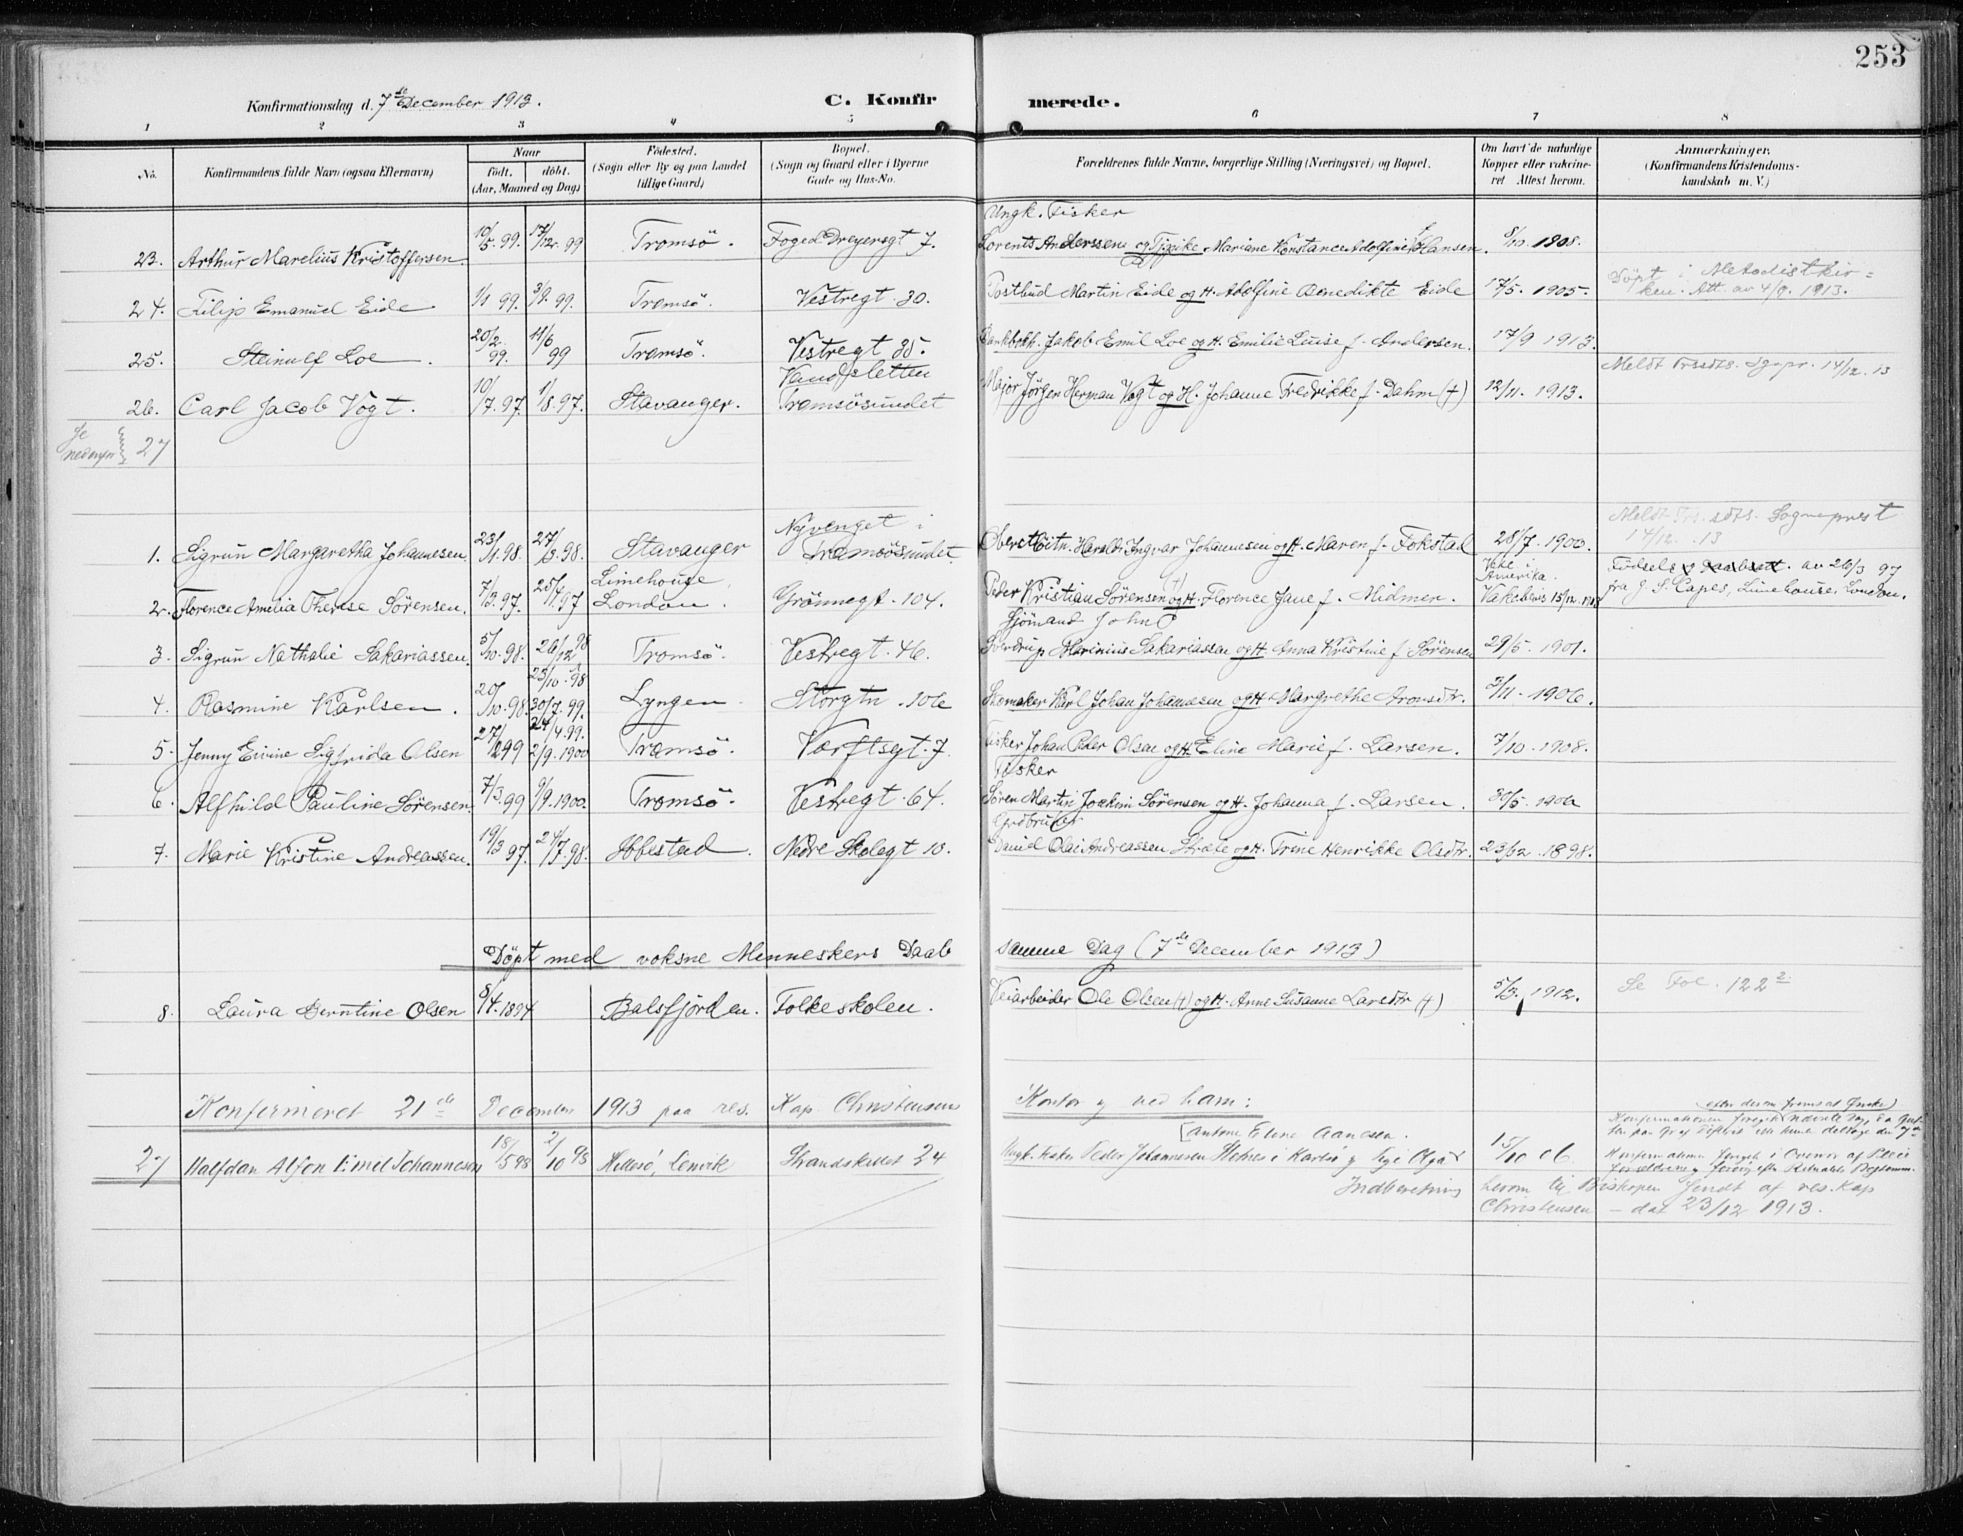 253
Konfirmationsdag d. 7de December 1913.
C. Konfirmerede.
1 2 3 4 5 6 7 8
No.
Konfirmandens fulde Navn (ogsaa Efternavn)
Naar
födt. döbt.
(Aar, Maaned og Dag)
Födested.
(Sogn eller By og paa Landet
tillige Gaard)
Bopæl.
(Sogn og Gaard eller i Byerne
Gade og Hus-No.
Forældrenes fulde Navne, borgerlige Stilling (Næringsvei) og Bopæl.
Om havt de naturlige
Kopper eller vaccine-
ret Attest herom.
Anmærkninger.
(Konfirmandens Kristendoms-
kundskab m. V.)
Ungk. Fisker
23. Arthur Marelius Kristoffersen 10/5.99. 17/12.99 Tromsö. Foged Dreyersgt 7. Lorents Anderssen og Pigeike Mariane Konstance Adolfine Hansen. 8/10.1908.
Döpt i Metodistkir=
24. Filip Emanuel Eide 1/1 99. 3/9.99. Tromsö. Vestregt. 30. Postbud Martin Eide og H. Adolfine Benedikte Eide 17/5.1905. ken. Att. av 4/9. 1913.
25. Steinulf Loe. 20/2.99. 11/6 99 Tromsö. Vestregt 35. Bankbokh. Jakob Emil Loe og H. Emilie Luise f. Andersen. 17/9 1913.
14/12.13
26. Carl Jacob Vogt. 10/7.97. 1/8.97. Stavanger. Tromsösundet Major Jörgen Herman Vogt og H. Johanne Fredrikke f. Dahm (+) 12/11.1913.
Se
nedenfor 27
Nyvenget i Sogneprest
1. Sigrun Margaretha Johannesen. 23/1.98. 27/3.98. Stavanger Tromsösundet. Oberstltn. Harald Ingvar Johannesen og H. Maren f. Fokstad 28/7.1900. 14/12.13
Limehouse, Amerika. av 26/3 97
2. Florence Amelia Therese Sörensen. 7/3.97. 25/11.97 London. Grönnegt. 104. Peder Kristian Sörensen og H. Florence Jane f. Midmer. fra J. S. Capes, Limehouse, London.
Sjömand John
3. Sigrun Nathalie Sakariassen. 5/10.98. 26/12 98 Tromsö. Vestregt. 46. Sverdrup Marinius Sakariassen og H. Anna Kristine f. Sörensen 29/5.1901.
23/10.98
4. Rasmine Karlsen. 20/10.98. 30/7.99. Lyngen Storgtn. 106 Skomaker Karl Johan Johannesen og H. Margrethe Aronsdtr. 3/11.1906.
24/4.99.
5. Jenny Eivine Sigfrida Olsen 27/2 99 2/9.1900 Tromsö. Værftsgt. 7. Fisker Johan Peder Olsen og H. Eline Marie f. Larsen. 7/10.1908.
Fisker
6. Alfhild Pauline Sörensen. 7/3.99 9/9.1900. Tromsö. Vestregt. 64. Sören Martin Joakim Sörensen og H. Johanna f. Larsen. 30/5.1906
Gårdbruker
7. Marie Kristine Andreassen. 19/3 97. 24/7.98. Ibbestad. Nedre Skolegt 10. Daniel Olai Andreassen Stræte og H. Trine Henrikke Olsdtr. 23/12.1898.
Döpt med voksne Menneskers Daab samme Dag (7de December 1913)
8. Laura Berntine Olsen 8/4.1894 Balsfjorden. Folkeskolen. Veiarbeider Ole Olsen (+) og H. Anne Susanne Larsdtr (+) 5/3. 1912. Se Fol. 122 2.
Konfirmeret 21de December 1913 paa res. Kap. Christensen Kontor og ved ham:
27 Halfdan Alfon Emil Johannesen 18/5 98 2/10 98 Hillesö, Lenvik Strandskillet 24 15/10 06.
Indberetning herom til Biskopen sendt af res. Kap
Christensen – dat 23/12 1913.